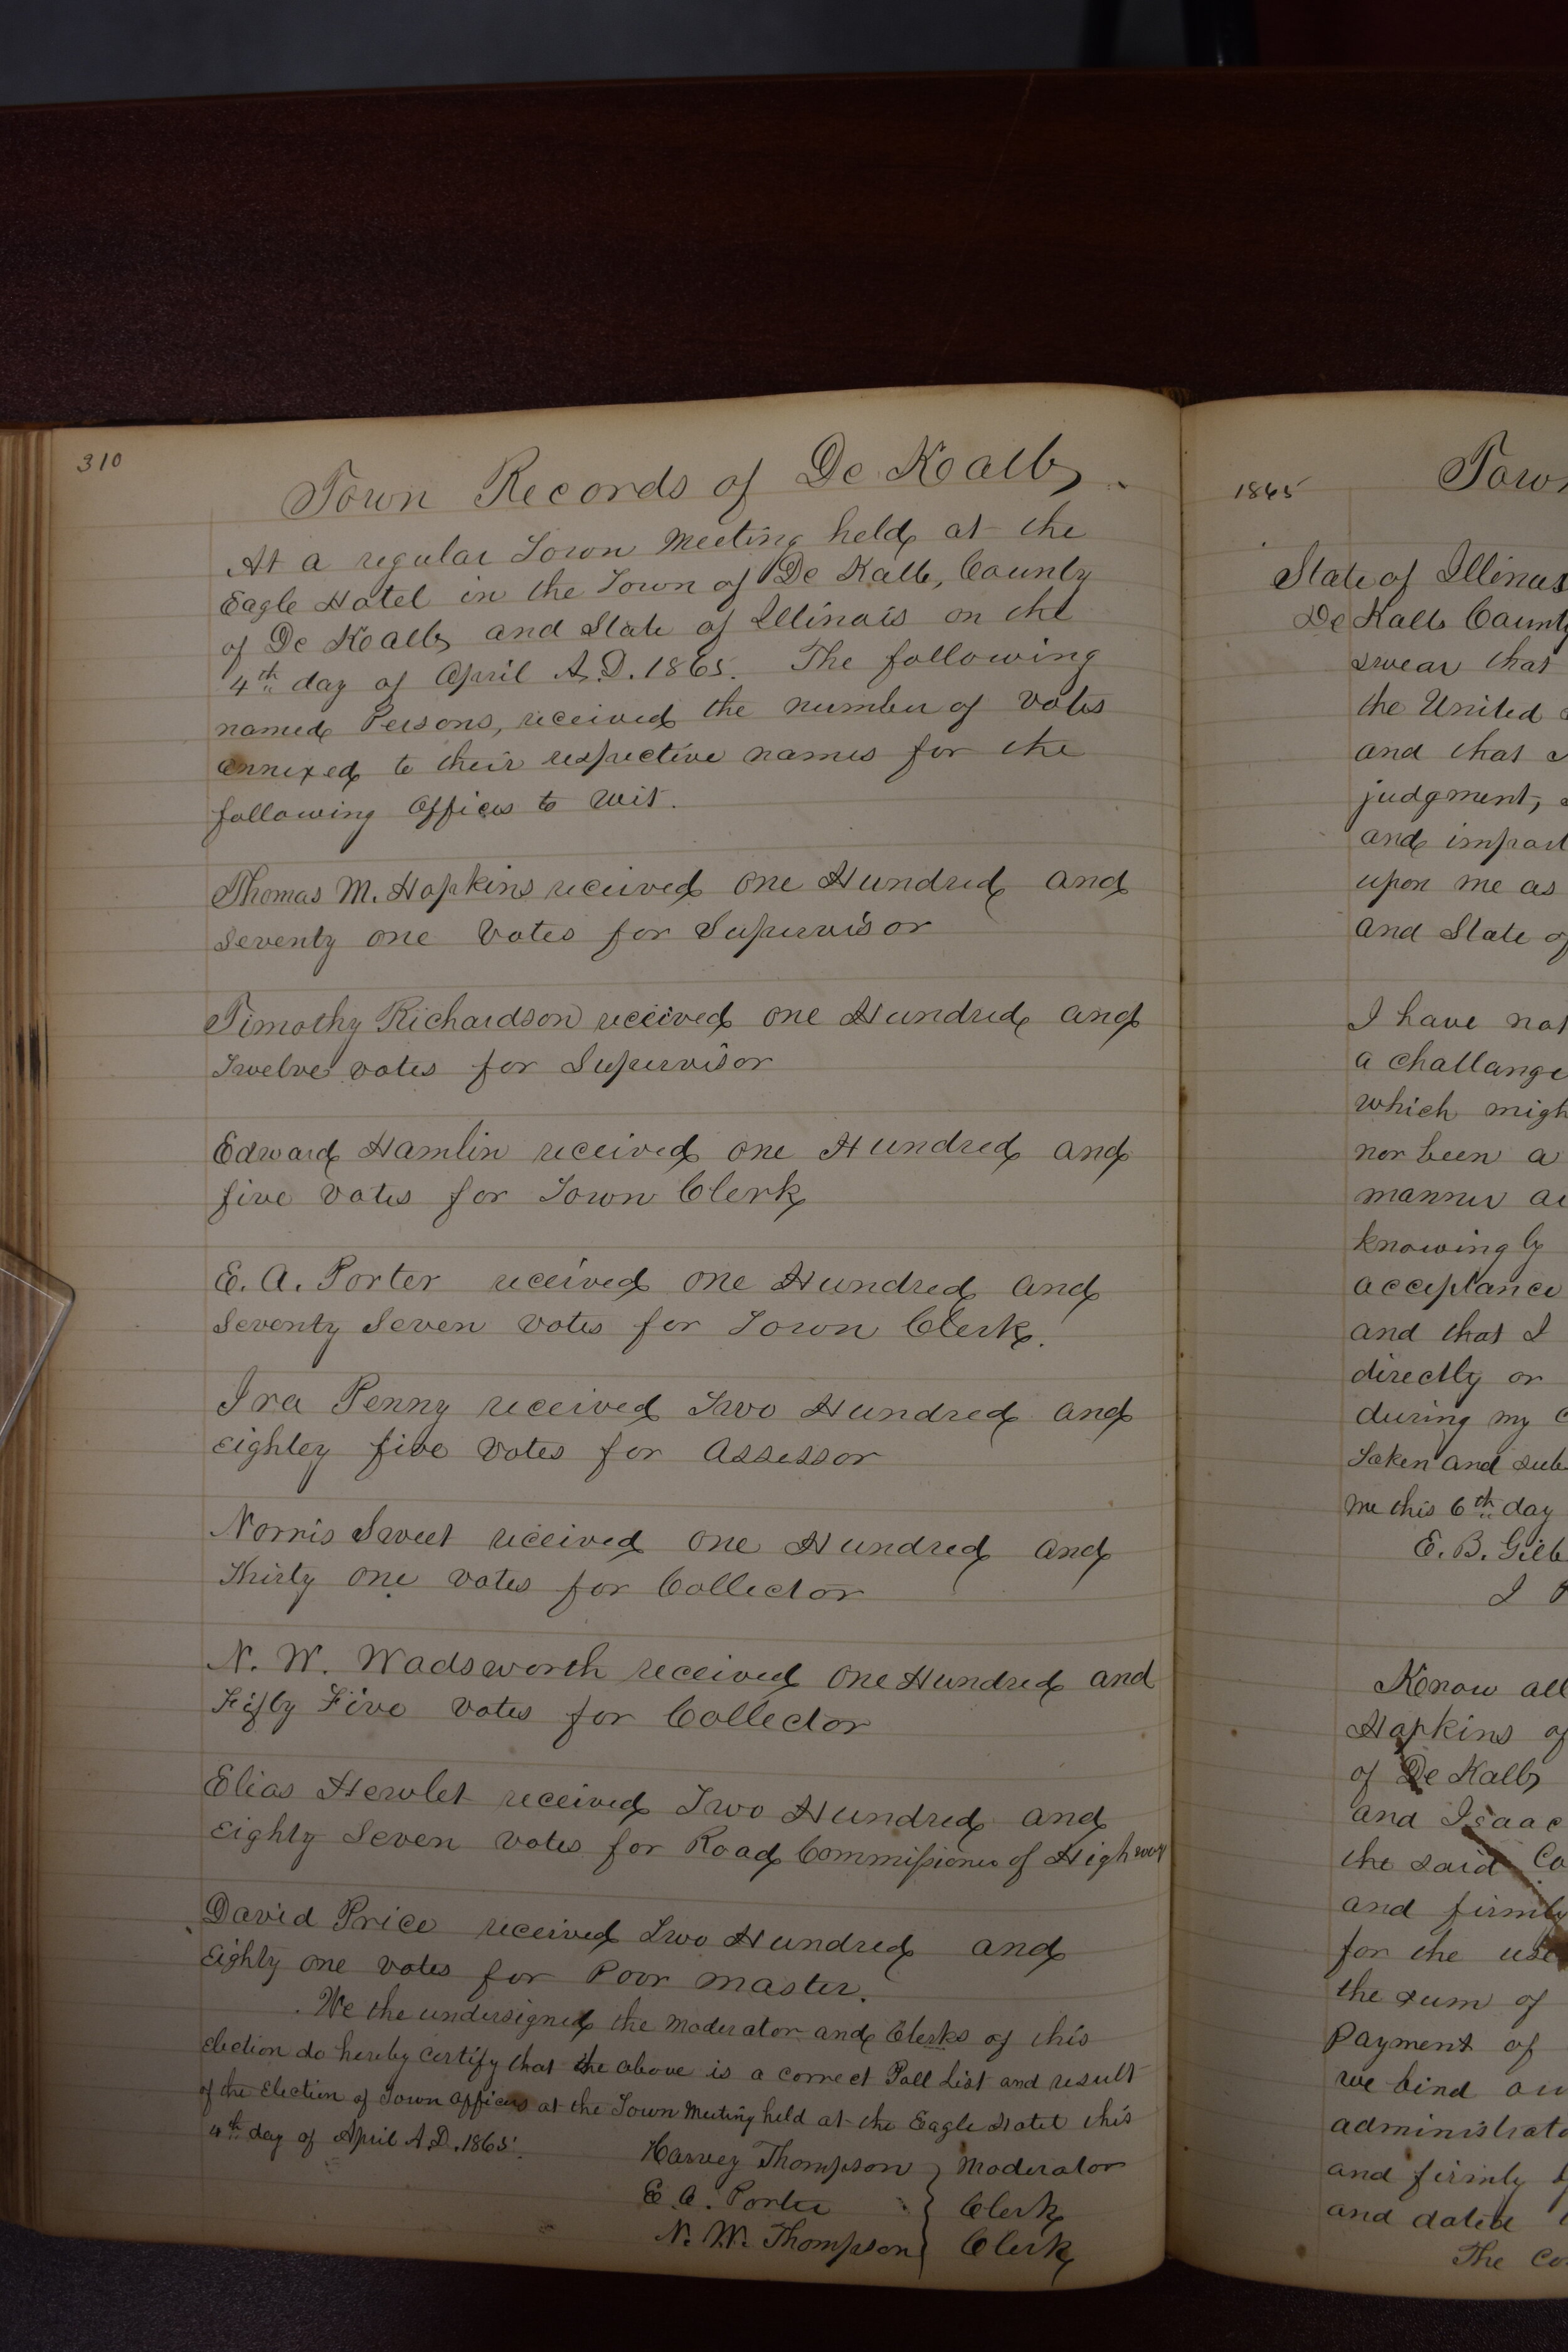 310
Town Records of De Kalb.
At a regular Town Meeting held at the
Eagle Hotel in the Town of De Kalb, County
of De Kalb and State of Illinois on the
4th day of April A.D. 1865. The following
named Persons, received the number of votes
annexed to their respective names for the
following Offices to wit.
Thomas M. Hopkins received one Hundred and
Seventy one Votes for Supervisor
Timothy Richardson received one Hundred and
Twelve votes for Supervisor
Edward Hamlin received one Hundred and
five votes for Town Clerk
E. A. Porter received one Hundred and
Seventy Seven votes for Town Clerk.
Ira Penny received Two Hundred and
eighty five votes for Assessor
Norris Sweet received one Hundred and
Thirty one votes for Collector
N. W. Wadsworth received one Hundred and
Fifty Five votes for Collector
Elias Hewlet received Two Hundred and
eighty Seven votes for Road Commissioner of Highway
David Price received Two Hundred and
Eighty one votes for Poor master.
We the undersigned the moderator and Clerks of this
Election do hereby certify that the above is a correct Poll List and result
of the Election of Town officers at the Town Meeting held at the Eagle Hotel this
4th day of April A.D. 1865.
Harvey Thompson } Moderator
E. A. Porter } Clerk
N. W. Thompson } Clerk
1865
Town
State of Illinois
De Kalb County
swear that
the United
and that
judgment,
and impart
upon me as
and State of
I have not
a challange
which migh
nor been a
manner
knowingly
acceptance
and that I
directly or
during my
Taken and sub
me this 6th day
E. B. Gilb
I
Know all
Hopkins of
of De Kalb
and Isaac
the said Co
and firmly
for the use
the sum of
Payment of
we bind ou
administrato
and firmly
and dated
The Co